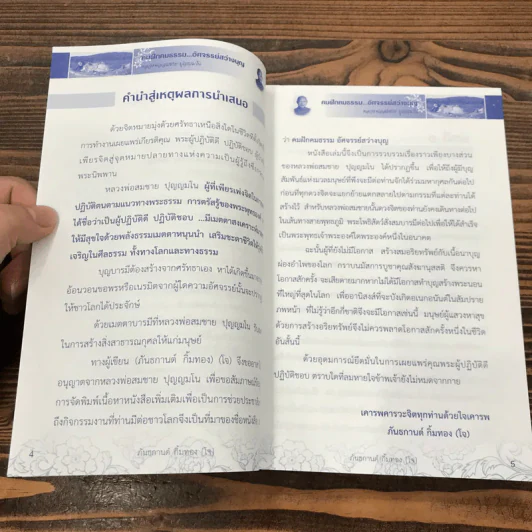 คมฝึกคมธรรม...อัศจรรย์สว่างบุญ
คำนำสู่เหตุผลการนำเสนอ
ด้วยจิตหมายมุ่งด้วยศรัทธาเหนือสิ่งใดในชีวิต
การทำงานเผยแพร่เกียรติคุณ พระผู้ปฏิบัติดี ปฏิบัติชอบ
เพียรจิตสู่จุดหมายปลายทางแห่งความเป็นผู้รู้ถึง
พระนิพพาน
หลวงพ่อสมชาย ปุญฺญมโน ผู้ที่เพียรเพ่งจิต
ปฏิบัติตนตามแนวทางพระธรรม การตรัสรู้ของพระพุทธ
ได้ชื่อว่าเป็นผู้ปฏิบัติดี ปฏิบัติชอบ ...มีเมตตาสงเคราะห์
ให้มีสุขใจด้วยพลังธรรมเมตตาหนุนนำ เสริมชะตาชีวิต
เจริญในศีลธรรม ทั้งทางโลกและทางธรรม
บุญบารมีต้องสร้างจากศรัทธาเอง หาได้เกิดขึ้น
อ้อนวอนขอพรหรือเนรมิตจากผู้ใดความอัศจรรย์นั้น
ให้ชาวโลกได้ประจักษ์
ด้วยเมตตาบารมีที่หลวงพ่อสมชาย ปุญฺญมโน
ในการสร้างสิ่งสาธารณกุศลให้แก่มนุษย์
ทางผู้เขียน (ภันธกานต์ กิ้มทอง (โจ) จึงขอ
อนุญาตจากหลวงพ่อสมชาย ปุญฺญมโน เพื่อขอสัมภาษณ์
การจัดพิมพ์เนื้อหาหนังสือเพิ่มเติมเพื่อเป็นการช่วย
ถึงกิจกรรมงานที่ท่านมีต่อชาวโลกจึงเป็นที่มาของชื่อหนังสือ
4
ภันธกานต์ กิ้มทอง (โจ)
คมฝึกคมธรรม...อัศจรรย์สว่างบุญ
ว่า คมฝึกคมธรรม อัศจรรย์สว่างบุญ
หนังสือเล่มนี้จึงเป็นการรวบรวมเรื่องราวเพียงบางส่วน
ของหลวงพ่อสมชาย ปุญฺญมโน ได้ปรากฏขึ้น เพื่อให้มีถึงผู้มีบุญ
สัมพันธ์แห่งมวลมนุษย์ที่พึงจะมีต่อท่านจักได้ร่วมมหากุศลกันต่อไป
ก่อนที่ทุกดวงจิตจะแยกย้ายแตกสลายไปตามกรรมที่แต่ละท่านได้
สร้างไว้ สำหรับหลวงพ่อสมชายนั้นดวงจิตของท่านยังคงเดินทางต่อไป
ในเส้นทางสายพุทธภูมิ พระโพธิสัตว์สั่งสมบารมีต่อไปเพื่อให้ได้สำเร็จ
เป็นพระพุทธเจ้าพระองค์ใดพระองค์หนึ่งในอนาคต
ฉะนั้นผู้ที่ยังไม่มีโอกาส สร้างสมอริยทรัพย์กับเนื้อนาบุญ
ผ่องอำไพของโลก กราบนมัสการบูชาคุณสังฆานุสสติ จึงควรหา
โอกาสสักครั้ง จะเสียดายมากหากไม่ได้มีโอกาสทำบุญสร้างพระนอน
ที่ใหญ่ที่สุดในโลก เพื่ออานิสงส์ที่จะบังเกิดเอนกอนันต์ในสัมปราย
ภพหน้า ที่ไม่รู้ว่าอีกกี่ชาติจึงจะมีโอกาสเช่นนี้ มนุษย์ผู้แสวงหาสุข
ด้วยการสร้างอริยทรัพย์จึงไม่ควรพลาดโอกาสสักครั้งหนึ่งในชีวิต
อันสั้นนี้
ด้วยอุดมการณ์ยึดมั่นในการเผยแผ่คุณพระผู้ปฏิบัติดี
ปฏิบัติชอบ ตราบใดที่ลมหายใจข้าพเจ้ายังไม่หมดจากกาย
เคารพคารวะจิตทุกท่านด้วยใจเคารพ
ภันธกานต์ กิ้มทอง (โจ)
ภันธกานต์ กิ้มทอง (โจ)
5